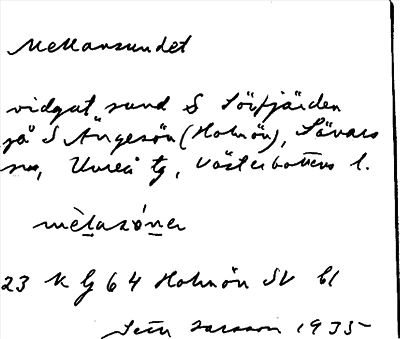 Mellansundet
vidgat sund S Sörfjärden
på S Ängesön (Holmön), Sävars
sn, Umeå tg, Västerbottens l.
mèlasóner
23 K G 6 4 Holmön SV bl
Larsson 1935